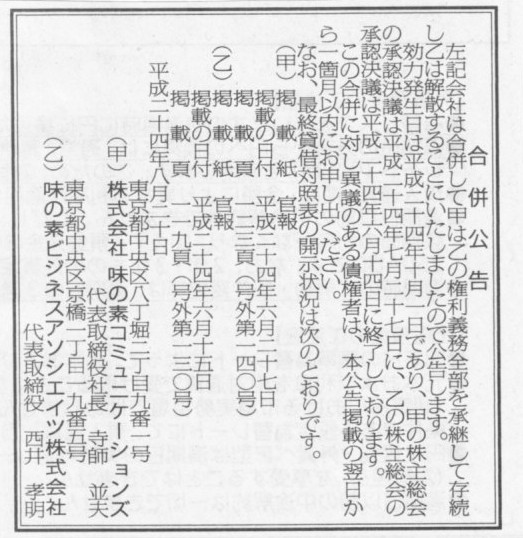 合併公告
左記会社は合併して甲は乙の権利義務全部を承継して存続
し乙は解散することにいたしましたので公告します。
効力発生日は平成二十四年十月一日であり、甲の株主総会
の承認決議は平成二十四年七月二十七日に、乙の株主総会の
承認決議は平成二十四年六月十四日に終了しております。
この合併に対し異議のある債権者は、本公告掲載の翌日か
ら一箇月以内にお申し出ください。
なお、最終貸借対照表の開示状況は次のとおりです。
(甲)掲載紙 官報
掲載の日付 平成二十四年六月二十八日
掲載頁 三頁(号外第一四〇号)
(乙)掲載紙 官報
掲載の日付 平成二十四年六月十五日
掲載頁 一二九頁(号外第一三〇号)
平成二十四年八月二十日
東京都中央区八丁堀二丁目九番一号
(甲)株式会社 味の素コミュニケーションズ
代表取締役社長 寺師 並夫
東京都中央区京橋一丁目一九番五号
(乙)味の素ビジネスアソシエイツ株式会社
代表取締役 西井 孝明